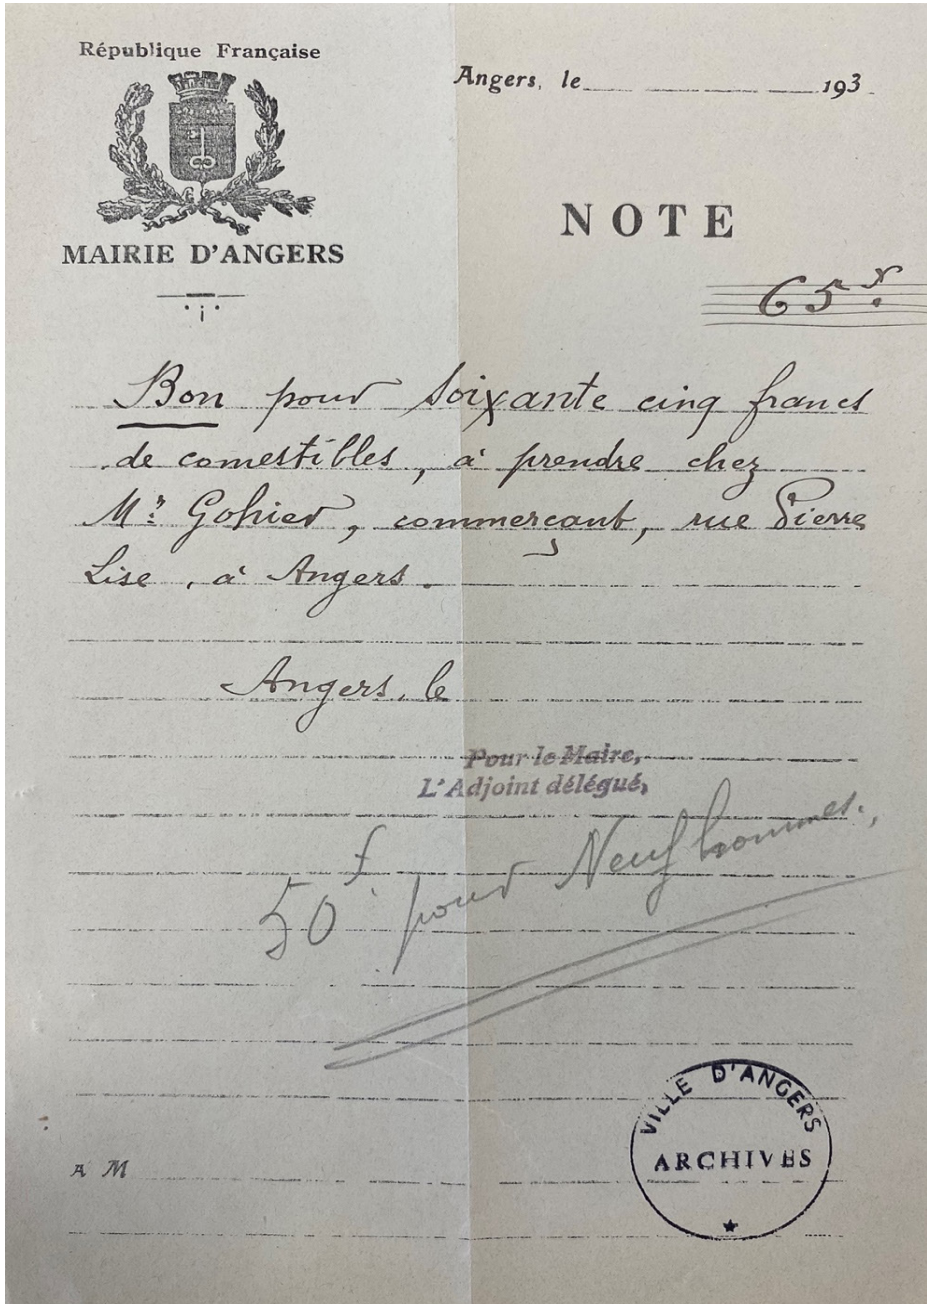 République Française
MAIRIE D'ANGERS
Angers, le 193
NOTE
65 f.
Bon pour soixante cinq francs
de comestibles, à prendre chez
Mr. Gohier, commerçant, rue Pierre
Lise, à Angers.
Angers, le
Pour le Maire,
L'Adjoint délégué,
50 f. pour Neuf hommes.
VILLE D'ANGERS
ARCHIVES
A M